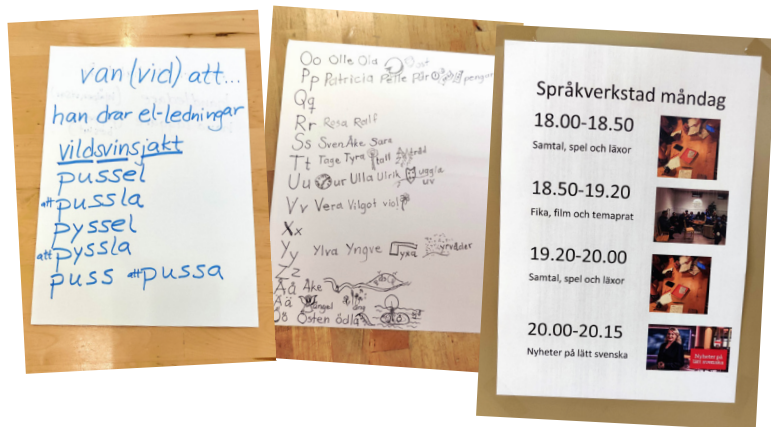 van (vid) att...
han drar el-ledningar
vildsvinsjakt
pussel
att pussla
pyssel
att pyssla
puss att pussa
Oo Olle Ola ost
Pp Patricia Pelle Pär pengar
Qq
Rr Rosa Ralf
Ss Sven Åke Sara
Tt Tage Tyra tall träd
Uu ur Ulla Ulrik uggla
uv
Vv Vera Vilgot viol
Xx
Yy Ylva Yngve yxa yrväder
Zz
Åå Åke
Ää ängel äng
Öö Östen ödla
Språkverkstad måndag
18.00-18.50
Samtal, spel och läxor
18.50-19.20
Fika, film och temaprat
19.20-20.00
Samtal, spel och läxor
20.00-20.15
Nyheter på lätt svenska
Nyheter på
lätt svenska